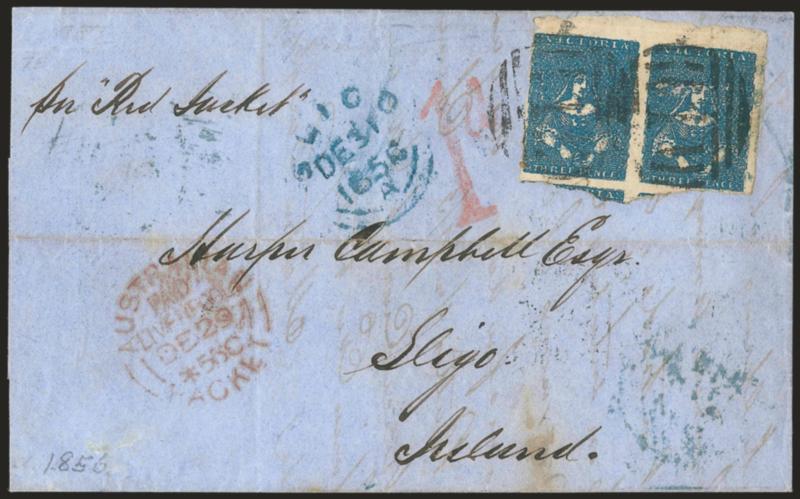 VICTORIA VICTORIA
THREE PENCE THREE PENCE
per "Red Jacket"
SLIGO
DE 31 O
1856
A
1d
Harper Campbell Esqr.
Sligo.
Ireland.
AUSTRALIAN
PAID
LIVERPOOL
DE 29
*56C
PACKET
1856